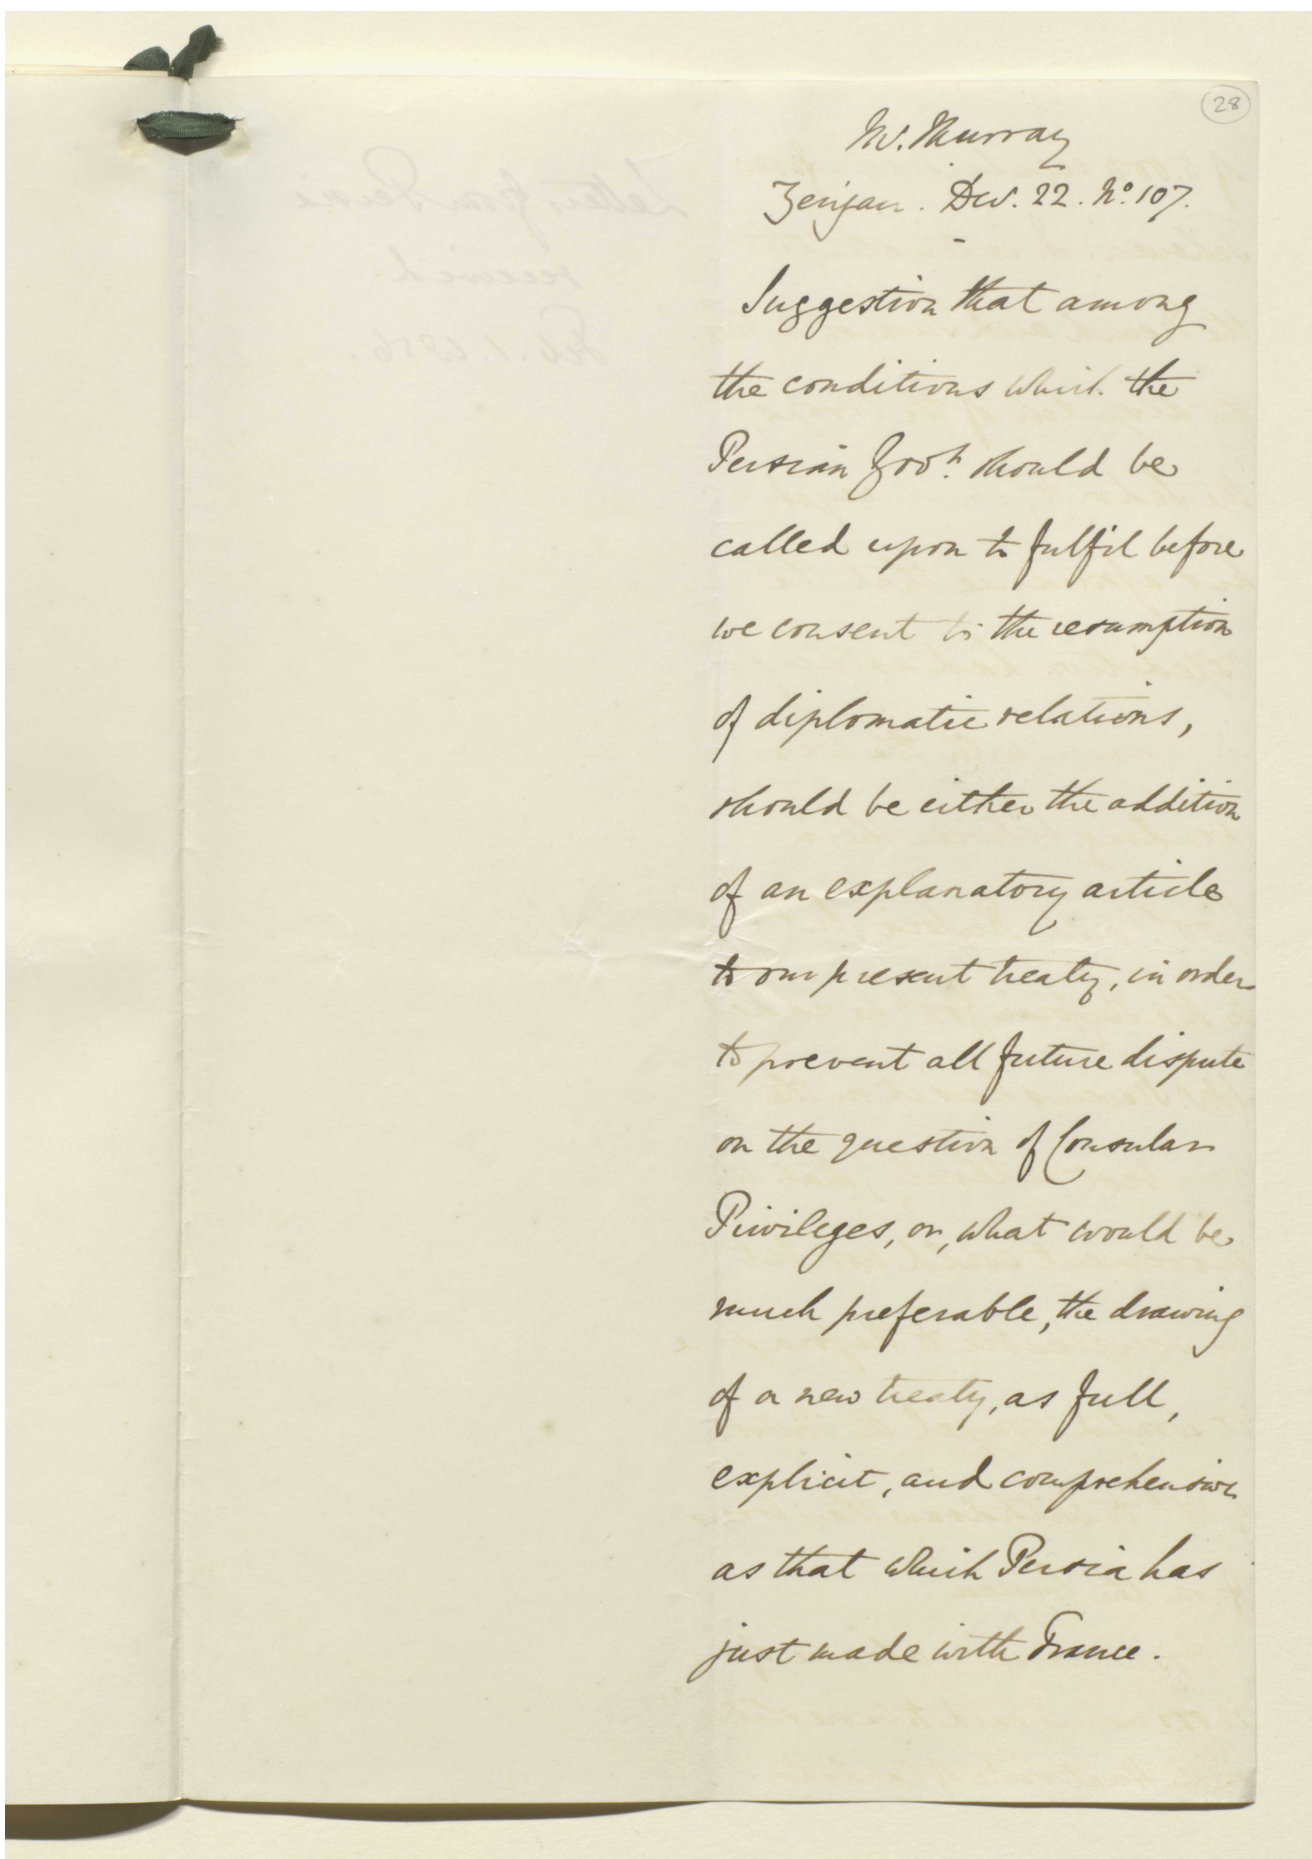 28
Mr. Murray
Zenjan. Dec. 22. No. 107.
Suggestion that among
the conditions which the
Persian Govt. should be
called upon to fulfil before
we consent to the resumption
of diplomatic relations,
should be either the addition
of an explanatory article
to our present treaty, in order
to prevent all future dispute
on the question of Consular
Privileges, or, what would be
much preferable, the drawing
of a new treaty, as full,
explicit, and comprehensive
as that which Persia has
just made with France.